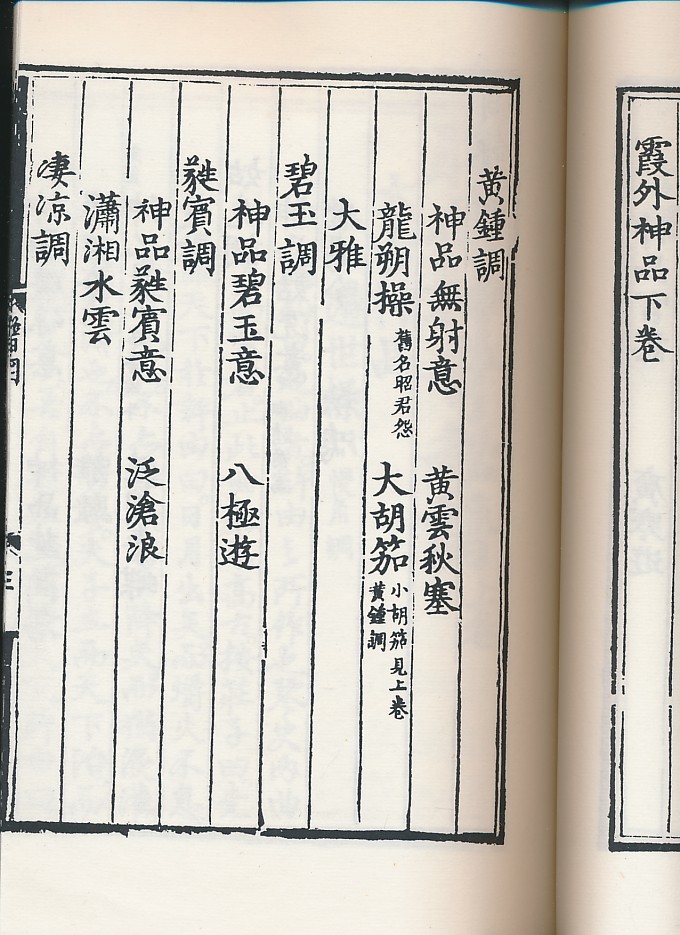 霞外神品下卷
黃鍾調
神品無射意　黃雲秋塞
龍朔操 舊名昭君怨　大胡笳 小胡笳見上卷黃鍾調
大雅
碧玉調
神品碧玉意　八極遊
蕤賓調
神品蕤賓意　泛滄浪
瀟湘水雲
凄凉調